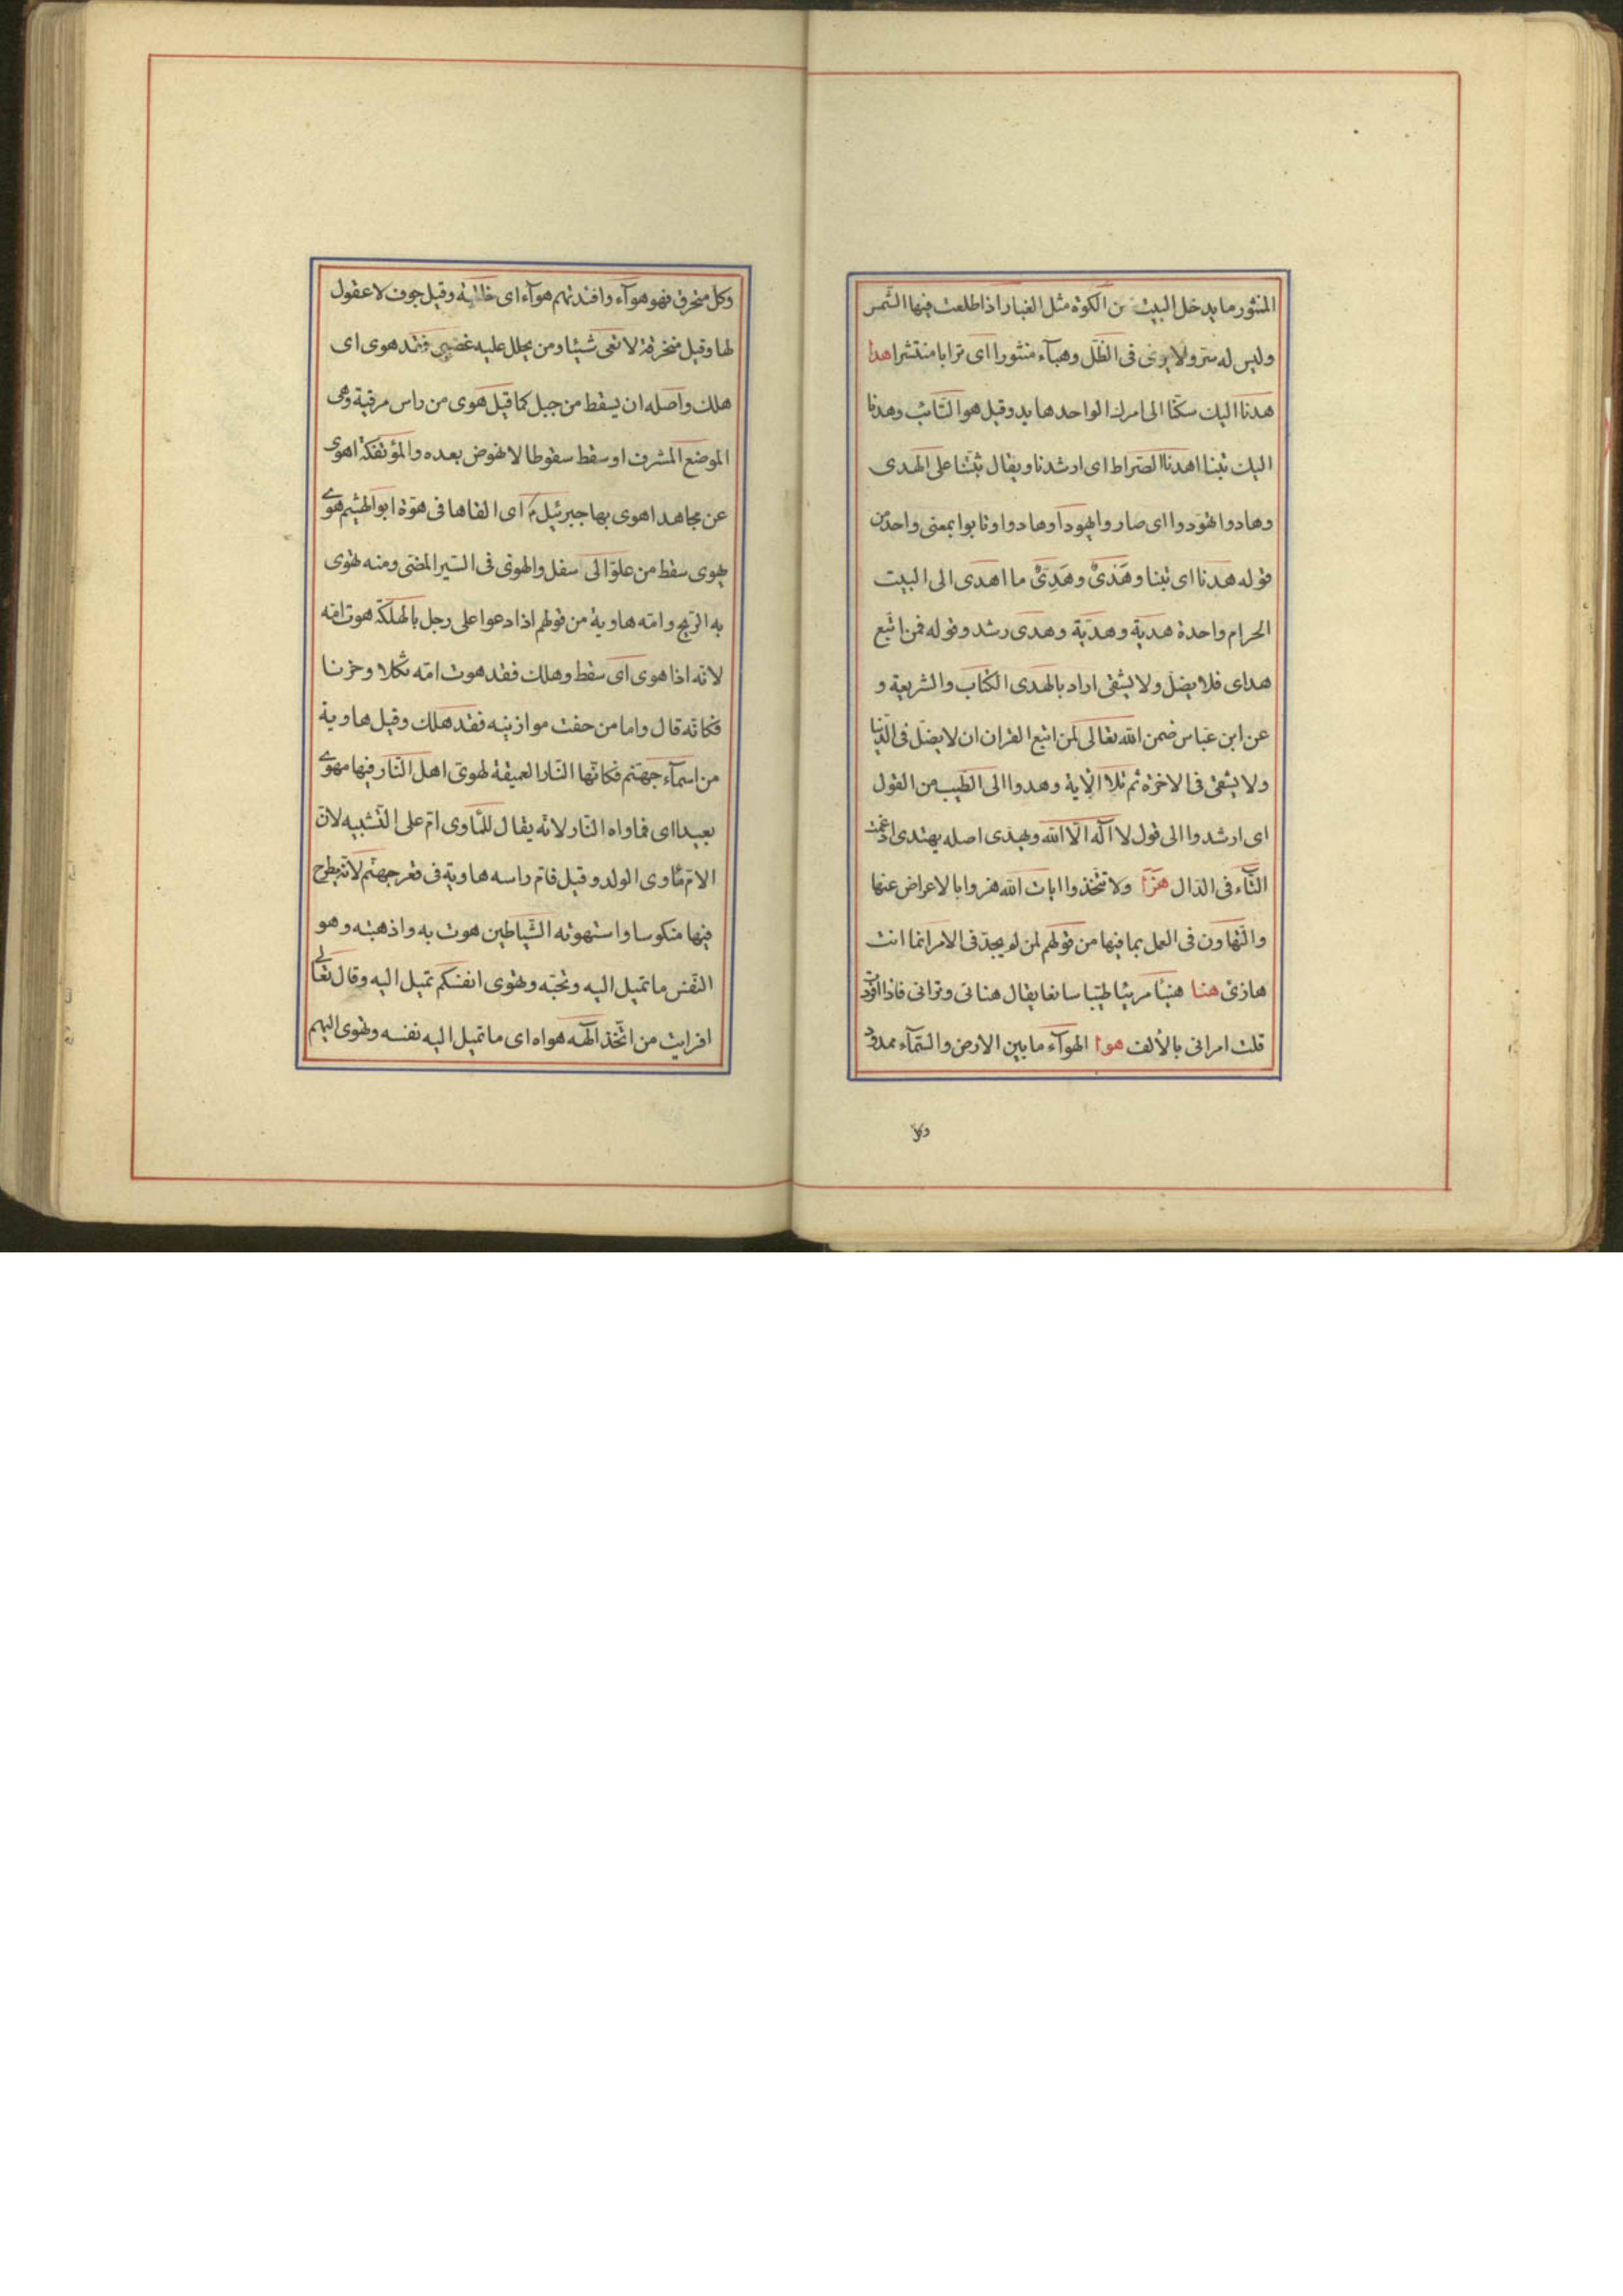 المنثور ما يدخل البيت من الكوة مثل الغبار اذا طلعت فيها الشمس
وليس له ستر ولا يرى فى الظل وهبآء منثورا اى ترابا منتشرا هدا
هدنا اليك سكنا الى امرك الواحد هايد وقيل هو التائب وهدنا
اليك تبنا اهدنا الصراط اى ارشدنا ويقال ثبتنا على الهدى
وهادوا تهودوا اى صاروا يهودا وهادوا وتابوا بمعنى واحد من
قوله هدنا اى تبنا وهَدْىٌ وهَدِىٌّ ما اهدى الى البيت
الحرام واحدة هدية وهديّة وهدى رشد وقوله فمن اتبع
هداى فلا يضل ولا يشقى اراد بالهدى الكتاب والشريعة و
عن ابن عباس ضمن الله تعالى لمن اتبع القران ان لا يضل فى الدنيا
ولا يشقى فى الاخرة ثم تلا الاية وهدوا الى الطيب من القول
اى ارشدوا الى قول لا اله الا الله ويهدى اصله يهتدى ادغمت
التآء فى الدال هزا ولا تتخذوا ايات الله هزوا بالاعراض عنها
والتهاون فى العمل بما فيها من قولهم لمن لم يجد فى الامر انما انت
هازئ هنا هنيئا مريئا طيبا سائغا يقال هنانى ومرانى فاذا افردت
قلت امرانى بالألف هوا الهوآء ما بين الارض والسمآء ممدود
وكل
وكل منخرق فهو هوآء وافئدتهم هوآء اى خالية وقيل جوف لا عقول
لها وقيل منخرقة لا تعى شيئا ومن يحلل عليه غضبى فقد هوى اى
هلك واصله ان يسقط من جبل كما قيل هوى من راس مرقبة وهى
الموضع المشرف او سقط سقوطا لا نهوض بعده والمؤتفكة اهوى
عن مجاهد اهوى بها جبرئيل اى القاها فى هوة ابو الهيثم هوى
يهوى سقط من علو الى سفل والهوى فى السير المضى ومنه تهوى
به الريح وامه هاوية من قولهم اذا دعوا على رجل بالهلكة هوت امه
لانه اذا هوى اى سقط وهلك فقد هوت امه ثكلا وحزنا
فكانه قال واما من خفت موازينه فقد هلك وقيل هاوية
من اسمآء جهنم فكانها النار العميقة لهوى اهل النار فيها مهوى
بعيدا اى فماواه النار لانه يقال للمأوى ام على التشبيه لان
الام مأوى الولد وقيل فام راسه هاوية فى قعر جهنم لانه يطرح
فيها منكوسا واستهوته الشياطين هوت به واذهبته وهو
النفس ما تميل اليه وتحبه وتهوى انفسكم تميل اليه وقال تعالى
افرايت من اتخذ الهه هواه اى ما تميل اليه نفسه وتهوى اليهم